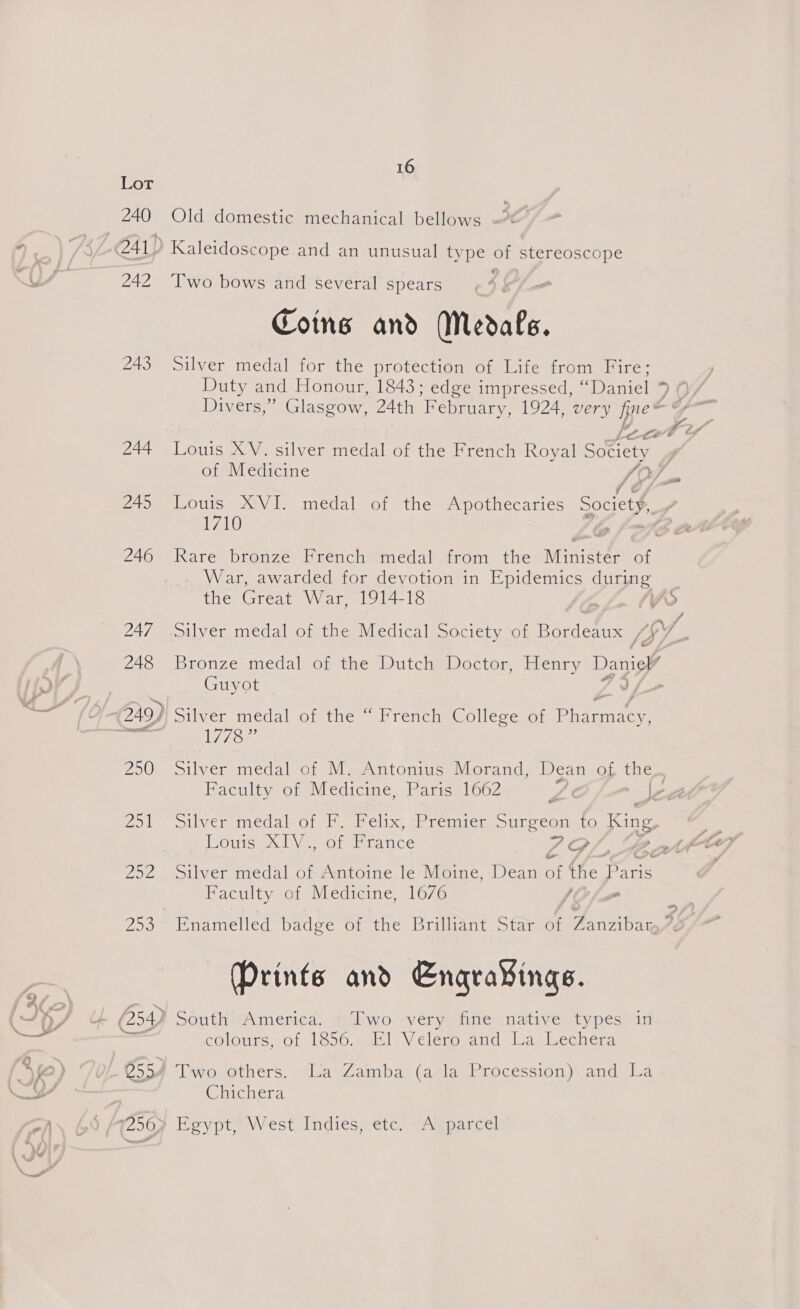 16
Lot
240 Old domestic mechanical bellows
241 Kaleidoscope and an unusual type of stereoscope
242 Two bows and several spears
Coins and Medals.
243 Silver medal for the protection of Life from Fire;
Duty and Honour, 1843; edge impressed, “Daniel
Divers,” Glasgow, 24th February, 1924, very fine
244 Louis XV. silver medal of the French Royal Society
of Medicine
245 Louis XVI. medal of the Apothecaries Society,
1710
246 Rare bronze French medal from the Minister of
War, awarded for devotion in Epidemics during
the Great War, 1914-18
247 Silver medal of the Medical Society of Bordeaux
248 Bronze medal of the Dutch Doctor, Henry Daniel
Guyot
249 Silver medal of the “ French College of Pharmacy,
1778 ”
250 Silver medal of M. Antonius Morand, Dean of the
Faculty of Medicine, Paris 1662
251 Silver medal of F. Felix, Premier Surgeon to King,
Louis XIV., of France
252 Silver medal of Antoine le Moine, Dean of the Paris
Faculty of Medicine, 1676
253 Enamelled badge of the Brilliant Star of Zanzibar,
Prints and Engravings.
254 South America. Two very fine native types in
colours, of 1856. El Velero and La Lechera
255 Two others. La Zamba (a la Procession) and La
Chichera
256 Egypt, West Indies, etc. A parcel